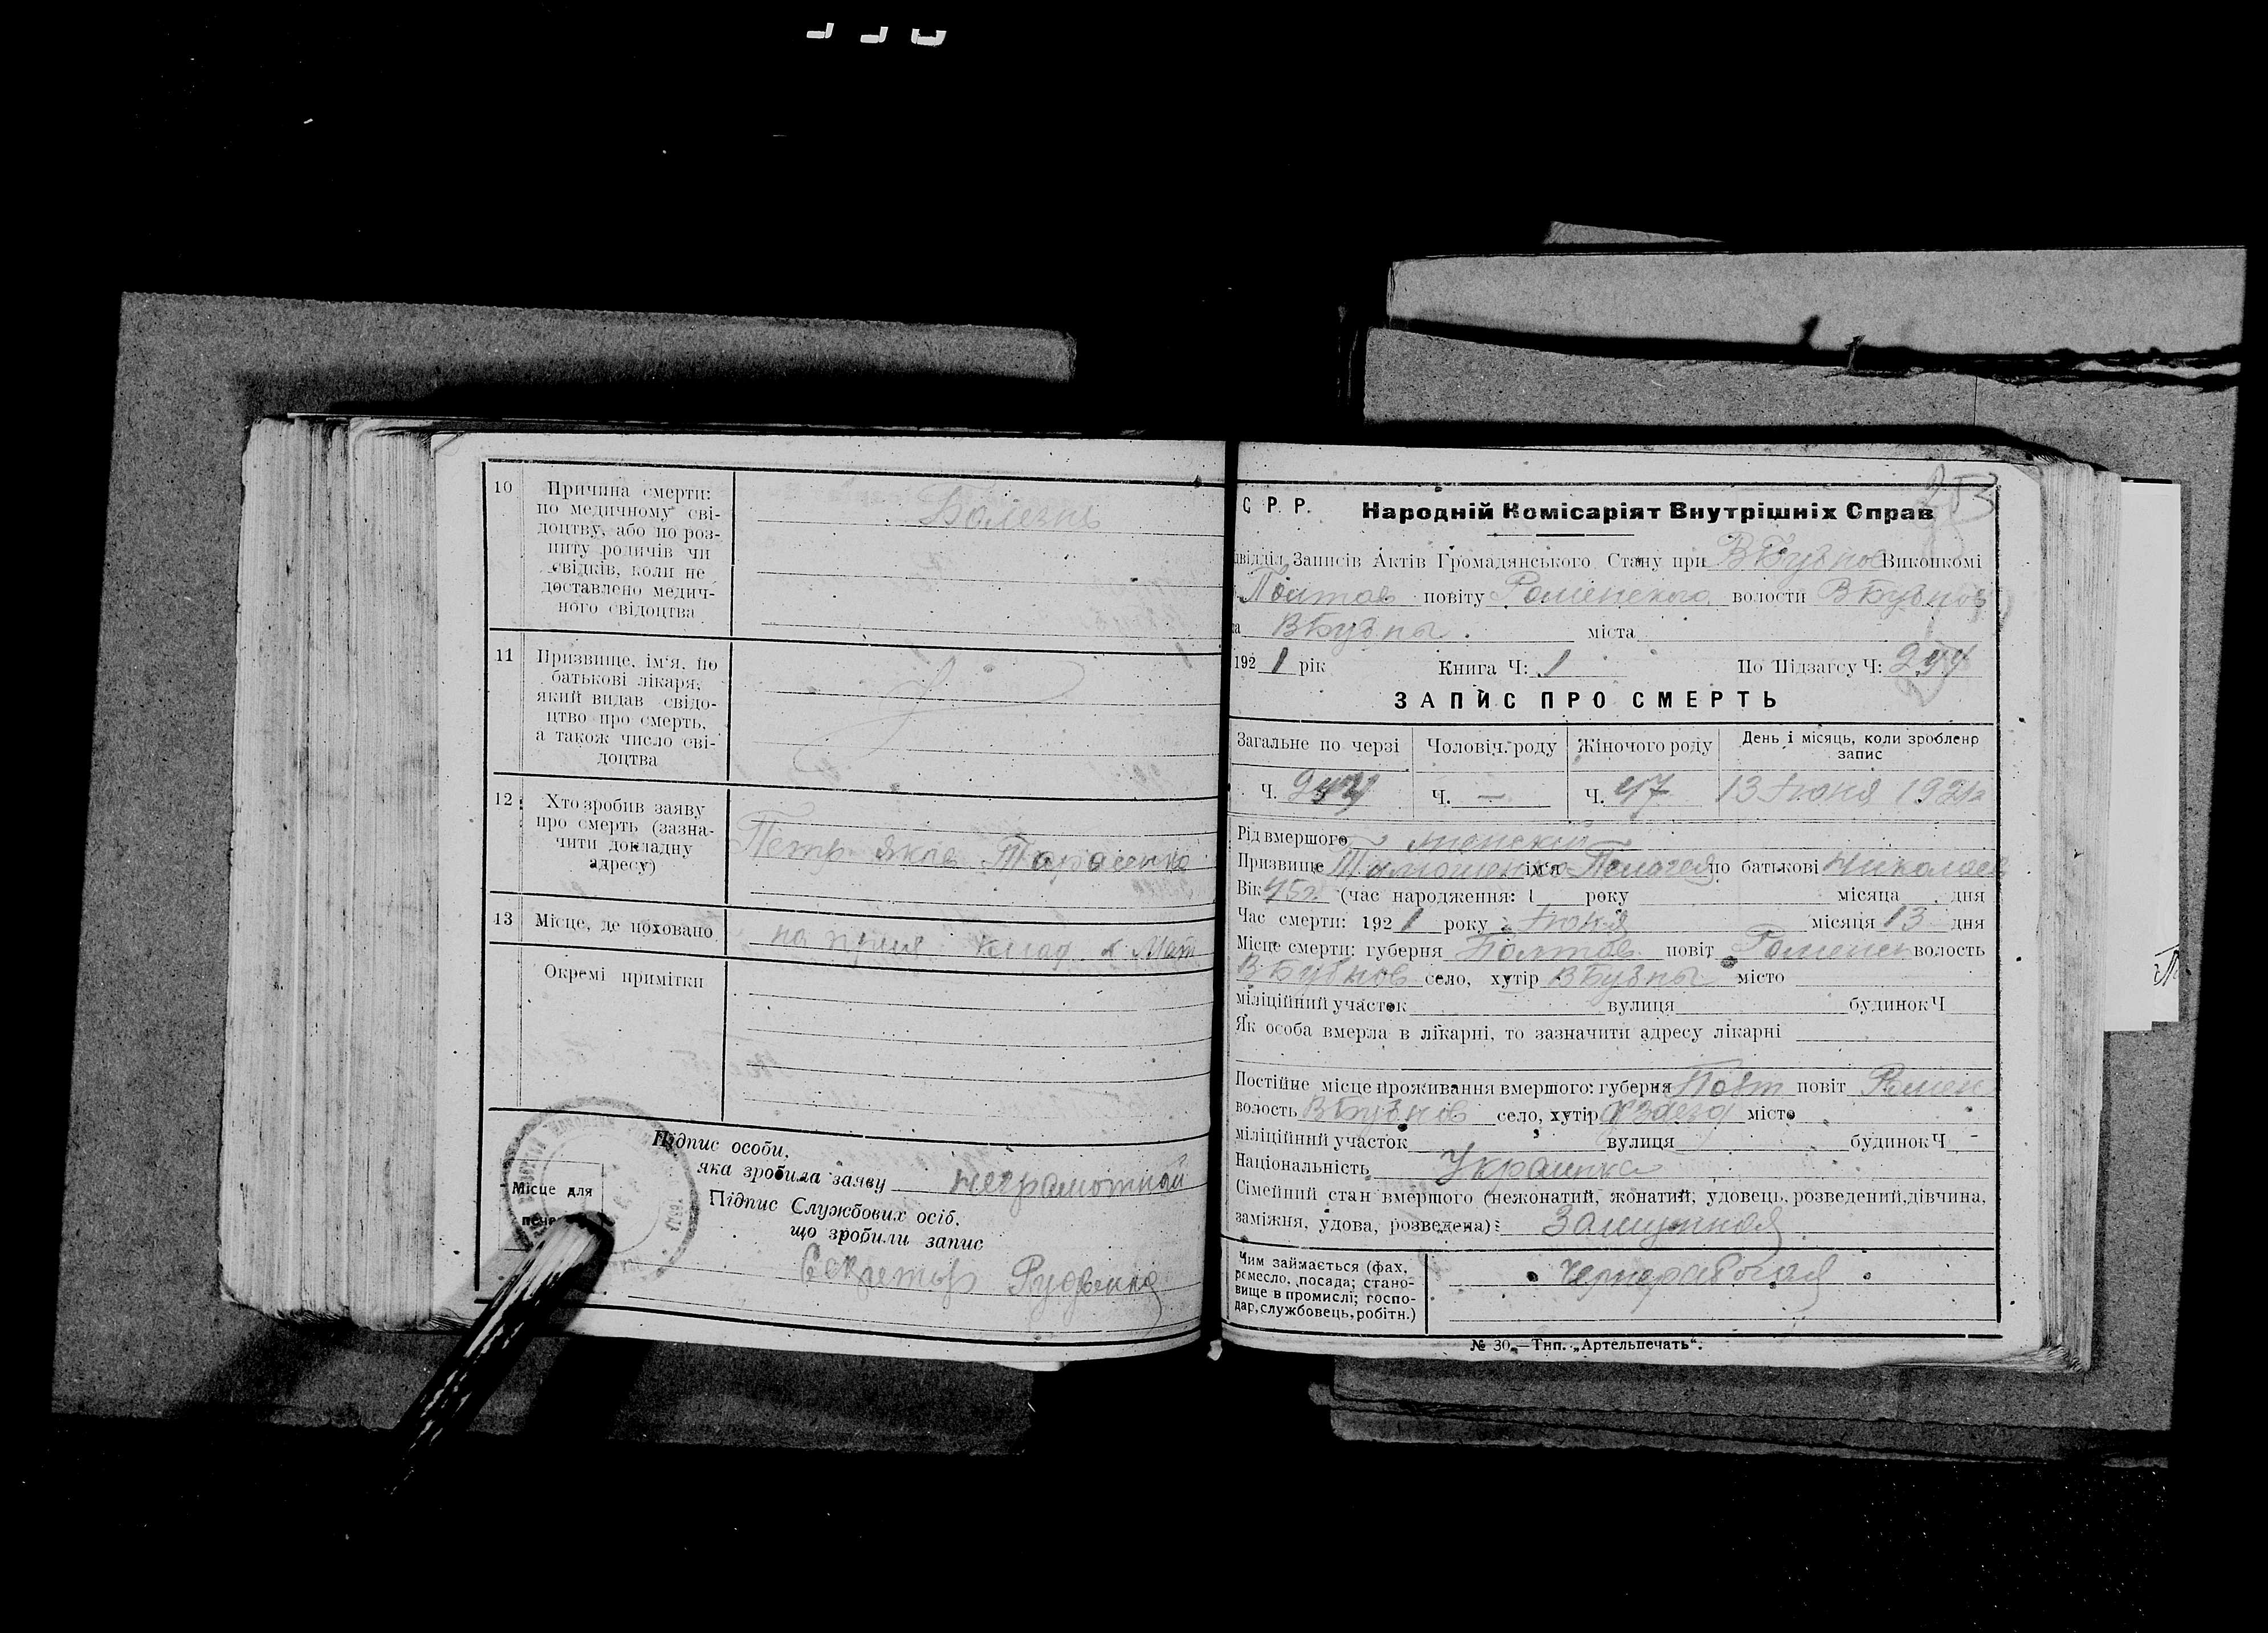 10 Причина смерти:
по медичному сві-
доцтву, або по роз-
питу родичів чи
свідків, коли не
доставлено медич-
ного свідоцтва
Болезнь
11 Призвище, ім'я, по
батькові лікаря,
який видав свідо-
цтво про смерть,
а також число сві-
доцтва
12 Хто зробив заяву
про смерть (зазна-
чити докладну
адресу)
Петр Яков Тарасенко
13 Місце, де поховано
на клад
Окремі примітки
Підпис особи,
яка зробила заяву неграмотный
Місце для
Підпис Службових осіб,
що зробили запис
Секретарь Рудченко
253
С. Р. Р. Народній Комісаріят Внутрішніх Справ
відділ Записів Актів Громадянського Стану при ВБубнов Виконкомі
Полтав повіту Роменского волости ВБубнов
ВБубны міста
1921 рік Книга Ч: 1 По Підзагсу Ч: 244
ЗАПИС ПРО СМЕРТЬ
Загальне по черзі Чоловіч. роду Жіночого роду День і місяць, коли зроблено
запис
Ч. Ч. — Ч. 47 13 Июня 1921
Рід вмершого женский
Призвище ім'я Пелагея по батькові Николаев
Вік 45 (час народження: 1 року місяца дня
Час смерти: 1921 року Июня місяця 13 дня
Місце смерти: губерня Полтав повіт Роменск волость
ВБубнов село, хутір ВБубны місто
міліційний участок вулиця будинок Ч
Як особа вмерла в лікарні, то зазначити адресу лікарні
Постійне місце проживання вмершого: губерня Полт повіт Ромен
волость ВБубнов село, хутір місто
міліційний участок вулиця будинок Ч -
Національність Украинка
Сімейний стан вмершого (нежонатий, жонатий, удовець, розведений, дівчина,
заміжня, удова, розведена): Замужная
Чим займається (фах,
ремесло, посада; стано-
вище в промислі; госпо-
дар, службовець, робітн.)
Чернорабочая
№ 30.—Тип. „Артельпечать“.